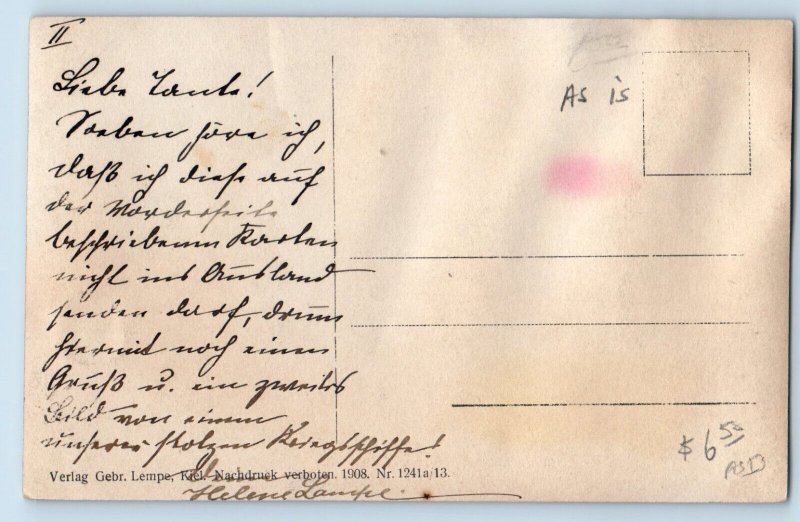 II
Liebe Tante!
Soeben höre ich,
daß ich diese auf
der Vorderseite
beschriebenen Karten
nicht ins Ausland
senden darf, drum
hiermit noch einen
Gruß u. ein zweites
Bild von einem
unserer stolzen Kriegsschiffe!
Verlag Gebr. Lempe, Kiel. Nachdruck verboten. 1908. Nr. 1241a/13.
Helene
As is
$6.50